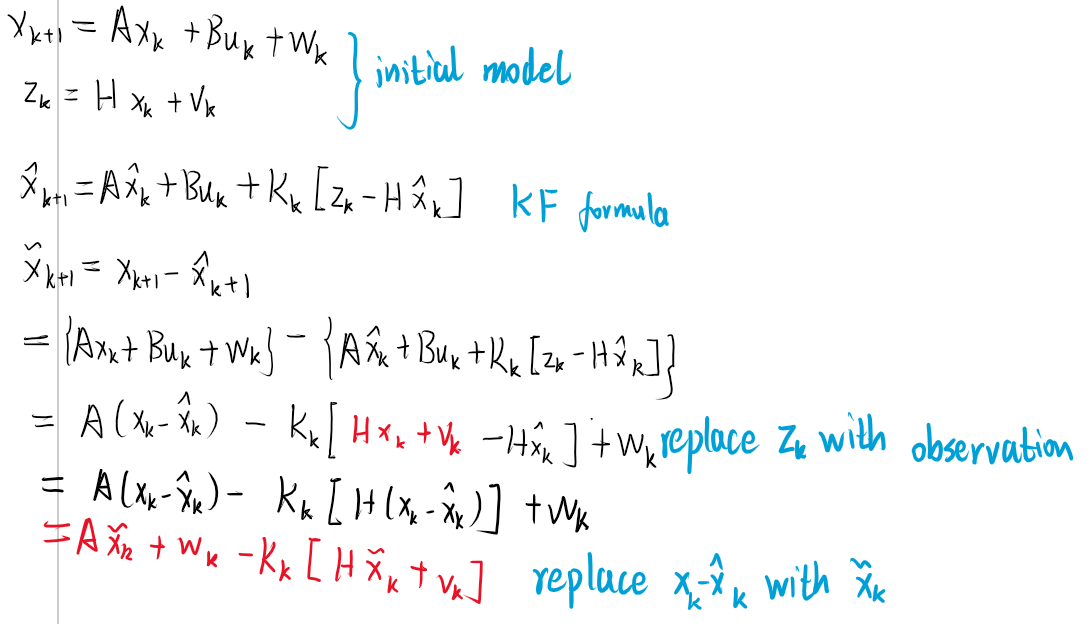 x_{k+1} = Ax_k + Bu_k + w_k
z_k = H x_k + v_k
} initial model
x̂_{k+1} = Ax̂_k + Bu_k + K_k [z_k - Hx̂_k] KF formula
x̃_{k+1} = x_{k+1} - x̂_{k+1}
= {Ax_k + Bu_k + w_k} - {Ax̂_k + Bu_k + K_k [z_k - Hx̂_k]}
= A(x_k - x̂_k) - K_k [Hx_k + v_k - Hx̂_k] + w_k replace z_k with observation
= A(x_k - x̂_k) - K_k [H(x_k - x̂_k)] + w_k
= Ax̃_k + w_k - K_k [Hx̃_k + v_k] replace x_k - x̂_k with x̃_k